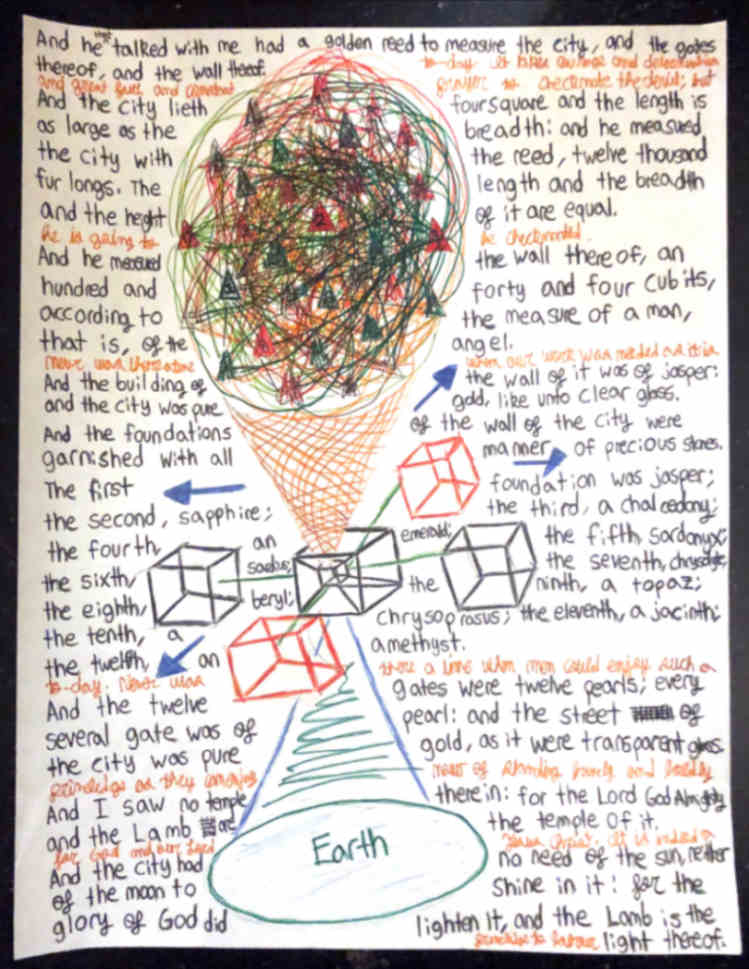 And he that talked with me had a golden reed to measure the city, and the gates
thereof, and the wall thereof.
to-day. It takes courage and determination
and great love and constant prayer to checkmate the devil; but
And the city lieth foursquare and the length is
as large as the breadth: and he measured
the city with the reed, twelve thousand
fur longs. The length and the breadth
and the height of it are equal.
he is going to be checkmated.
And he measured the wall thereof, an
hundred and forty and four cubits,
according to the measure of a man,
that is, of the angel.
Never was there a time when our work was needed as it is
And the building of the wall of it was of jasper:
and the city was pure gold, like unto clear glass.
And the foundations of the wall of the city were
garnished with all manner of precious stones.
The first foundation was jasper;
the second, sapphire; the third, a chalcedony;
the fourth, an emerald; the fifth, sardonyx;
the sixth, sardius; the seventh, chrysolyte;
the eighth, beryl; the ninth, a topaz;
the tenth, a chrysoprasus; the eleventh, a jacinth;
the twelfth, an amethyst.
to-day. Never was there a time when men could enjoy such a
And the twelve gates were twelve pearls; every
several gate was of pearl: and the street of
the city was pure gold, as it were transparent glass.
priviledge as they enjoy now of standing bravely and boldly
And I saw no temple therein: for the Lord God Almighty
and the Lamb are the temple of it.
for God and our Lord Jesus Christ. It is indeed a
And the city had no need of the sun, neither
of the moon to shine in it: for the
glory of God did lighten it, and the Lamb is the
light thereof.
Earth